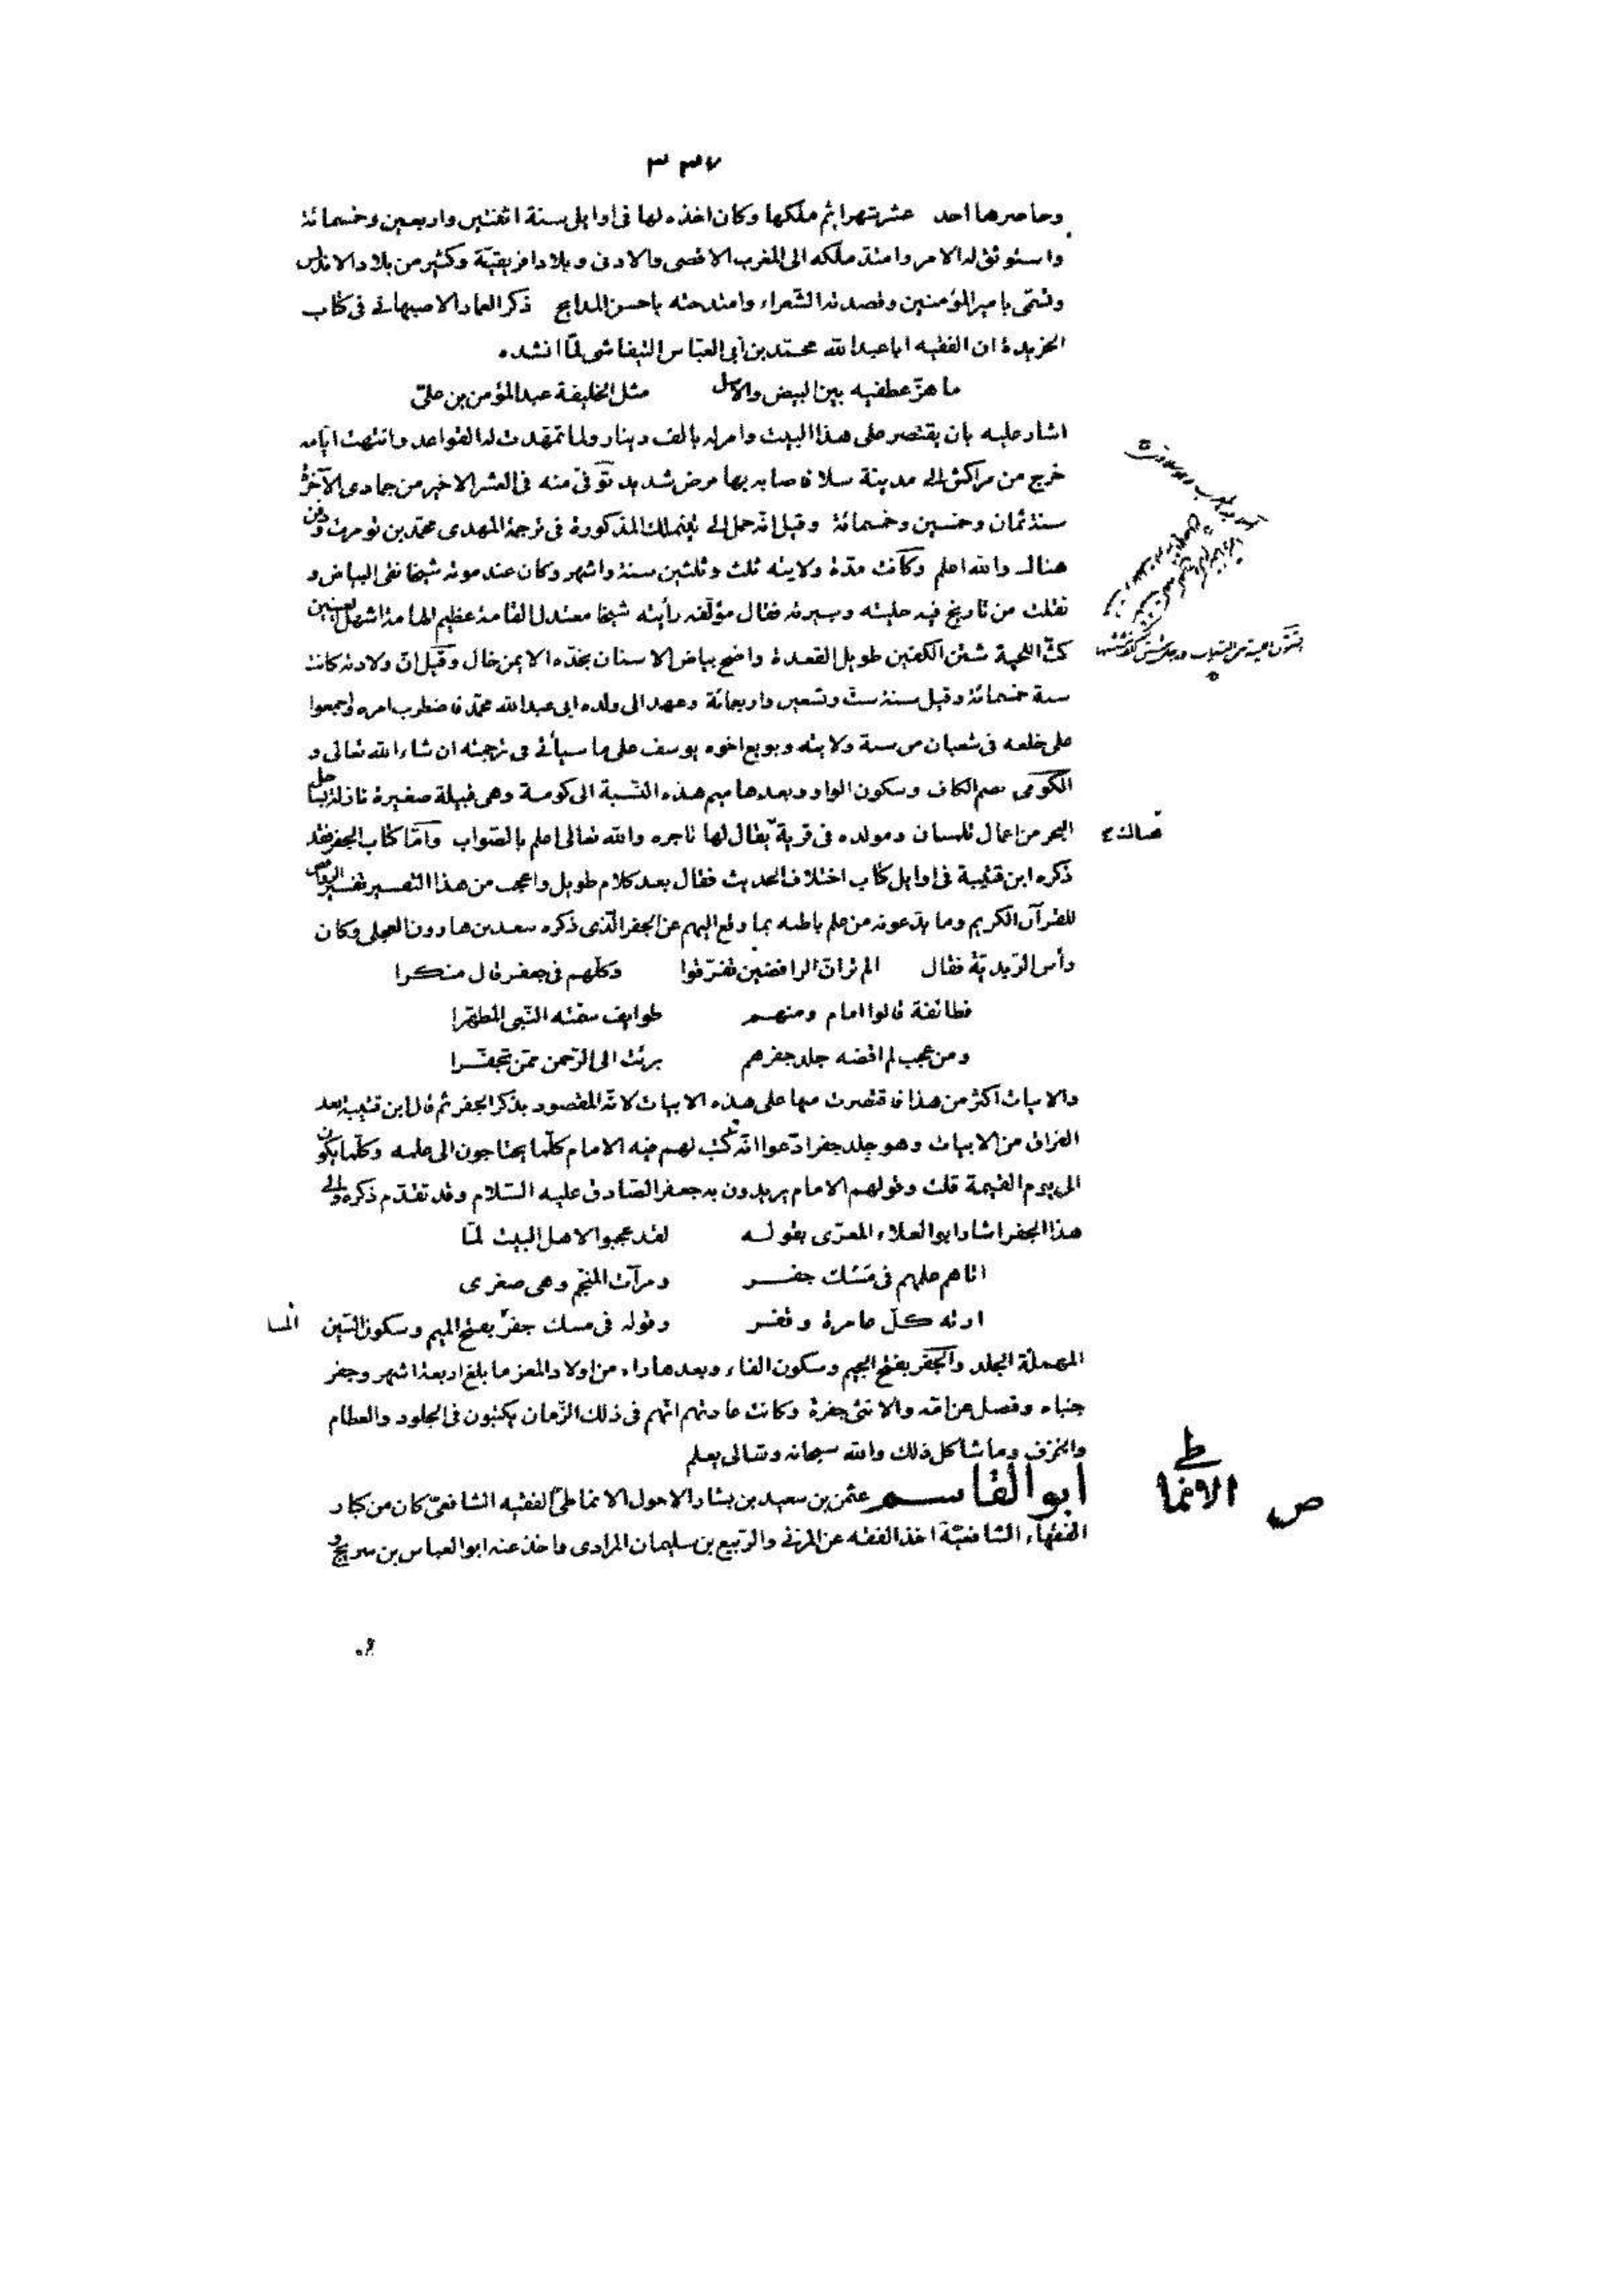 ٣٣٧
وحاصرها احد عشر شهرا ثم ملكها وكان اخذه لها فى اوايل سنة اثنتين واربعين وخمسمائة
واستوثق له الامر وامتد ملكه الى المغرب الاقصى والادنى وبلاد افريقيّة وكثير من بلاد الاندلس
وتسمّى بامير المؤمنين وقصدته الشعراء وامتدحته باحسن المدايح ذكر العماد الاصبهانى فى كتاب
الخريدة ان الفقيه ابا عبد الله محمّد بن ابى العبّاس التيفاشى لمّا انشده
ما هزّ عطفيه بين البيض والاسل مثل الخليفة عبد المؤمن بن علىّ
اشار عليه بان يقتصر على هذا البيت وامر له بالف دينار ولما تمهّدت له القواعد وانتهت ايّامه
خرج من مراكش الى مدينة سلا فاصابه بها مرض شديد توفّى منه فى العشر الاخير من جمادى الآخرة
سنة ثمان وخمسين وخمسمائة وقيل انّه حمل الى تينملل المذكورة فى ترجمة المهدى محمّد بن تومرت ودفن
هناك والله اعلم وكانت مدّة ولايته ثلث وثلثين سنة واشهر وكان عند موته شيخا نقى البياض و
نقلت من تاريخ فيه حليته وسيرته فقال مؤلّفه رأيته شيخا معتدل القامة عظيم الهامة اشهل العينين
كثّ اللحية شثن الكفّين طويل القعدة واضح بياض الاسنان بخدّه الايمن خال وقيل انّ ولادته كانت
سنة خمسمائة وقيل سنة ستّ وتسعين واربعمائة وعهد الى ولده ابى عبد الله محمّد فاضطرب امره واجمعوا
على خلعه فى شعبان من سنة ولايته وبويع اخوه يوسف على ما سيأتى فى ترجمته ان شاء الله تعالى و
الكومى بضم الكاف وسكون الواو وبعدها ميم هذه النّسبة الى كومية وهى قبيلة صغيرة نازلة بساحل
البحر من اعمال تلمسان ومولده فى قرية يقال لها تاجره والله تعالى اعلم بالصّواب وامّا كتاب الجفر فقد
ذكره ابن قتيبة فى اوايل كتاب اختلاف الحديث فقال بعد كلام طويل واعجب من هذا التفسير تفسير الروافض
للقرآن الكريم وما يدّعونه من علم باطنه بما وقع اليهم من الجفر الّذى ذكره سعد بن هارون العجلى وكان
رأس الزيديّة فقال الم تر انّ الرافضين تفرّقوا وكلّهم فى جعفر قال منكرا
فطائفة قالوا امام ومنهم طوايف سمّته النّبى المطهّرا
ومن عجب لم اقضه جلد جفرهم برئت الى الرّحمن ممّن تجفّرا
والابيات اكثر من هذا فاقتصرت منها على هذه الابيات لانّه المقصود بذكر الجفر ثم قال ابن قتيبة بعد
الفراق من الابيات وهو جلد جفر ادّعوا انّه كتب لهم فيه الامام كلّما يحتاجون الى علمه وكلّما يكون
الى يوم القيمة قلت وقولهم الامام يريدون به جعفر الصّادق عليه السّلام وقد تقدّم ذكره والى
هذا الجفر اشار ابو العلاء المعرّى بقوله لقد عجبوا لاهل البيت لمّا
اتاهم علمهم فى مَسك جفر ومرآت المنجّم وهى صغرى
ارته كلّ عامرة وقفر وقوله فى مسك جفر بفتح الميم وسكون السّين
المهملة الجلد والجفر بفتح الجيم وسكون الفاء وبعدها راء من اولاد المعز ما بلغ اربعة اشهر وجفر
جنباه وفصل عن امّه والانثى جفرة وكانت عادتهم انّهم فى ذلك الزّمان يكتبون فى الجلود والعظام
والخزف وما شاكل ذلك والله سبحانه وتعالى يعلم
ابو القاسم عثمن بن سعيد بن بشار الاحول الانماطىّ الفقيه الشافعىّ كان من كبار
الفقهاء الشافعيّة اخذ الفقه عن المزنى والربيع بن سليمان المرادى واخذ عنه ابو العباس بن سريج و
ص الانماطى